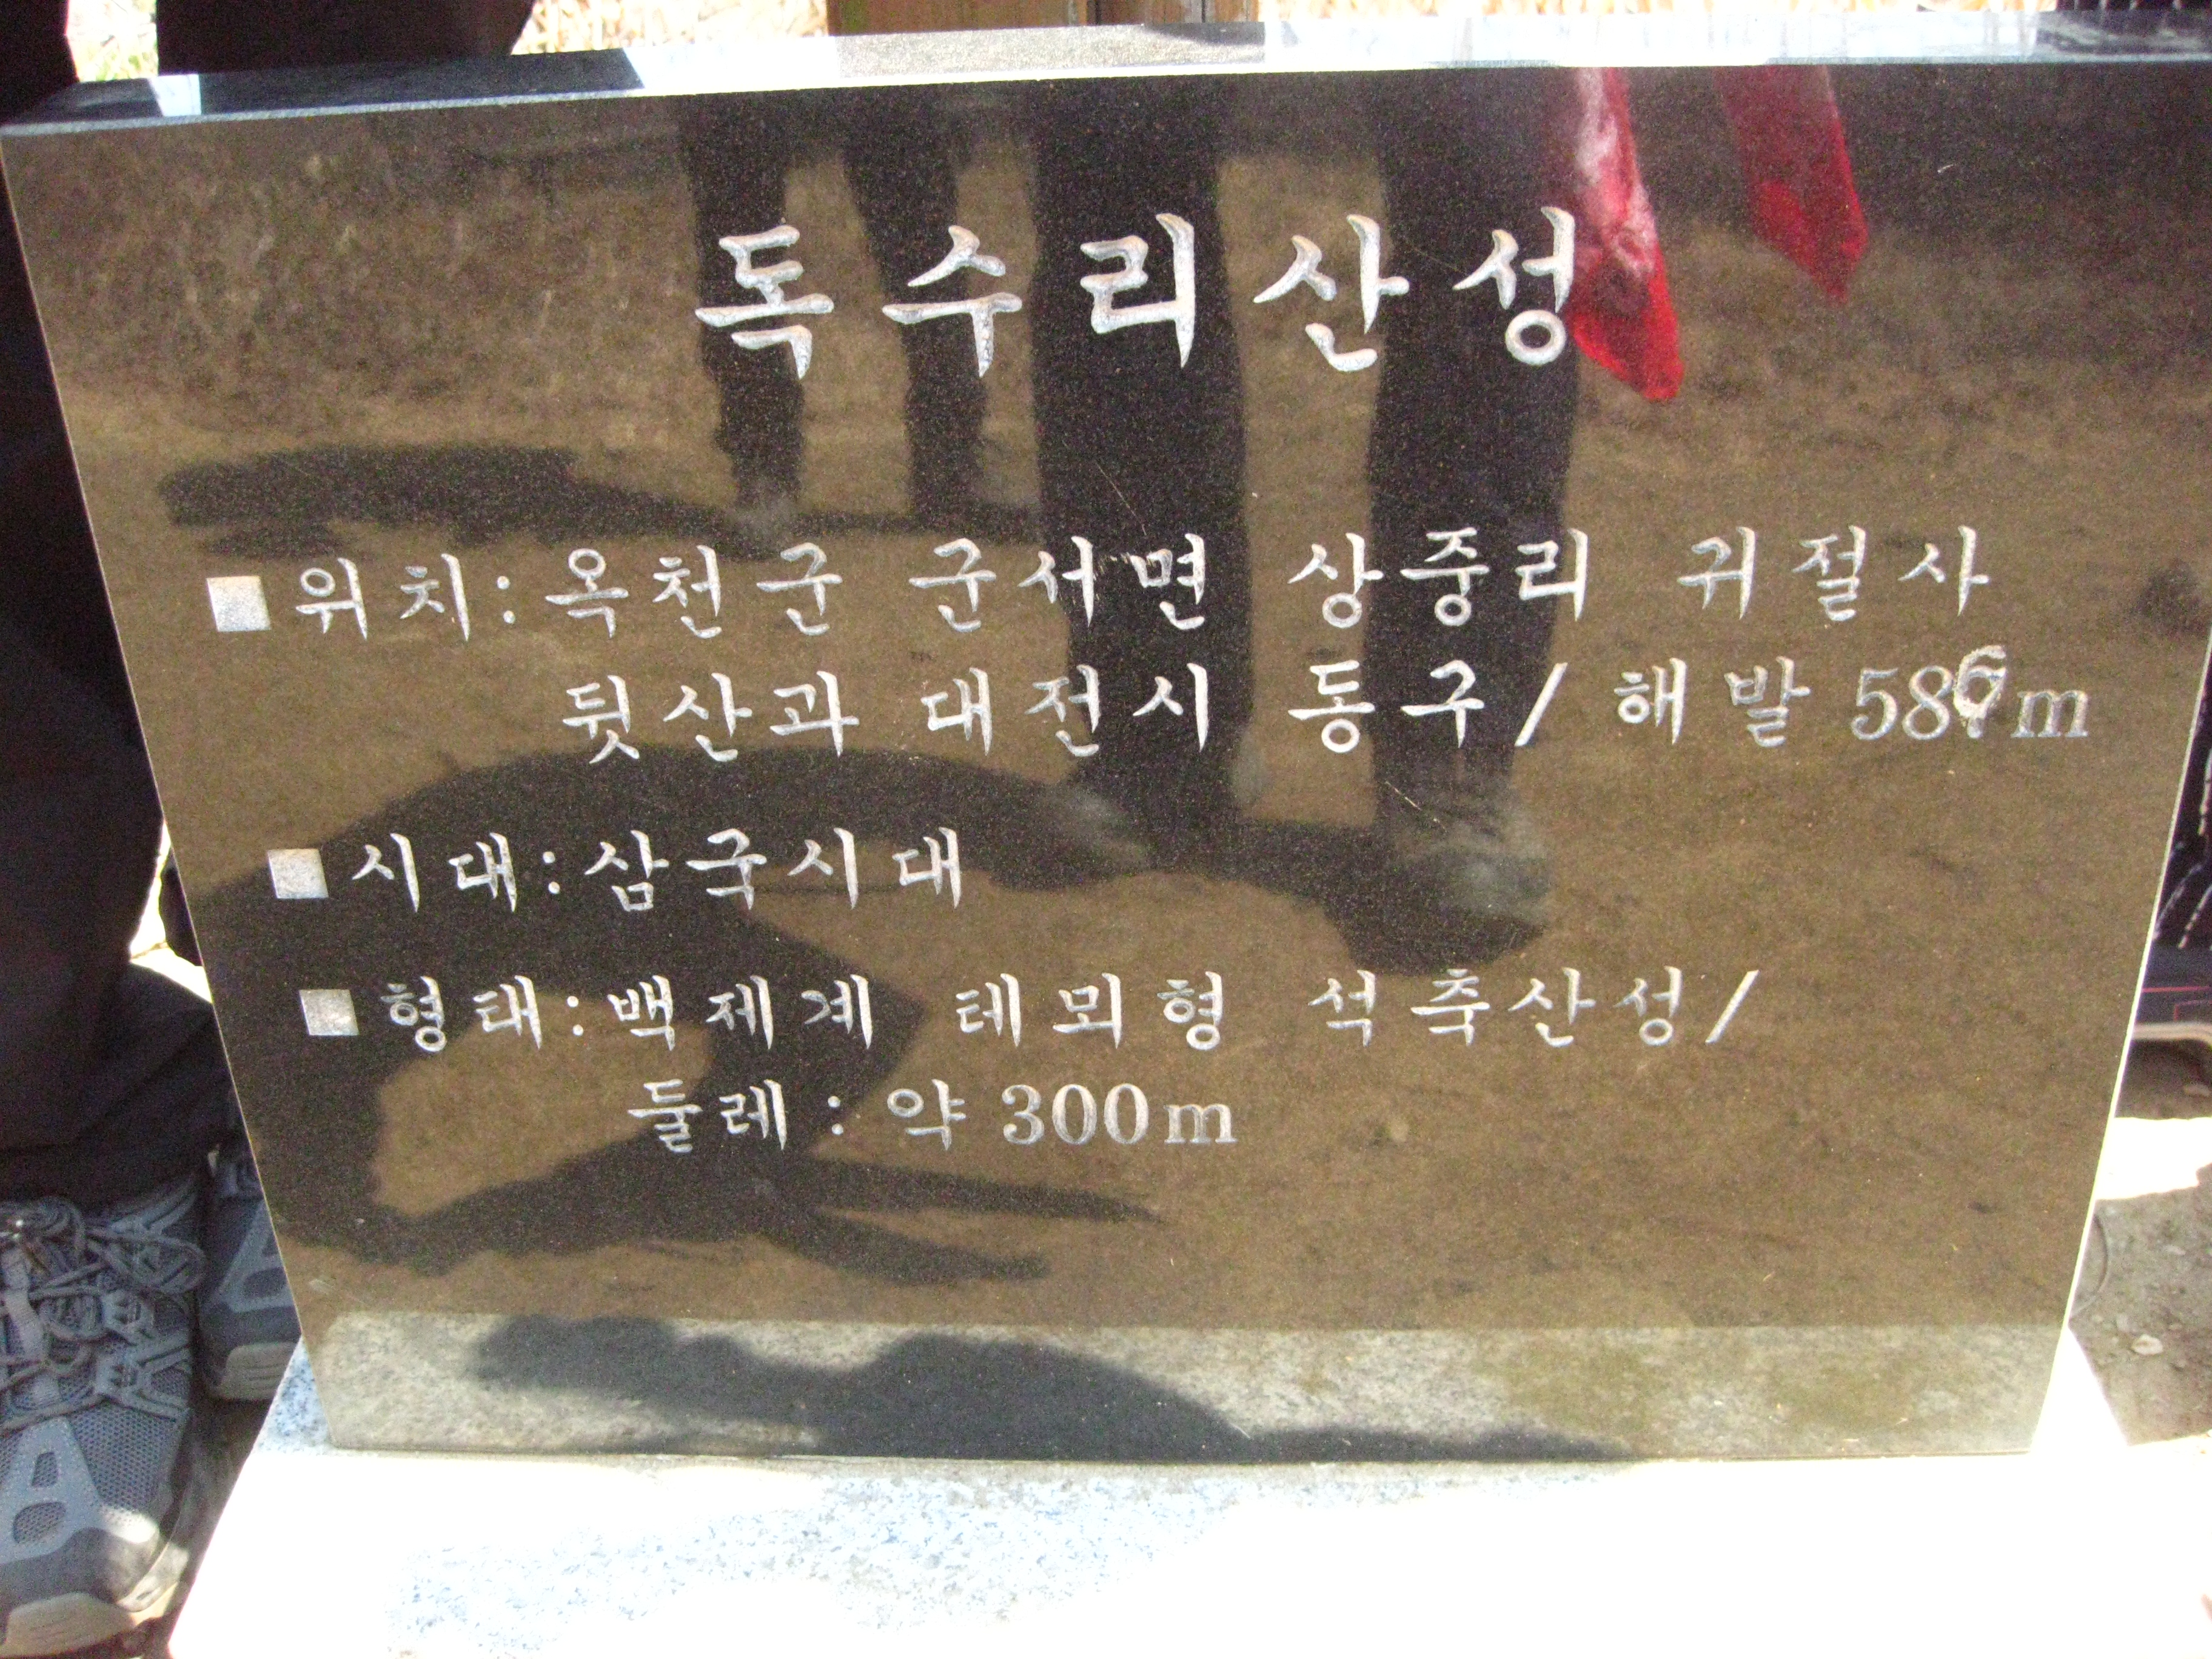 독수리산성
■위치:옥천군 군서면 상중리 귀절사
뒷산과 대전시 동구/해발 586m
■시대:삼국시대
■형태:백제계 테뫼형 석축산성/
둘레:약 300m